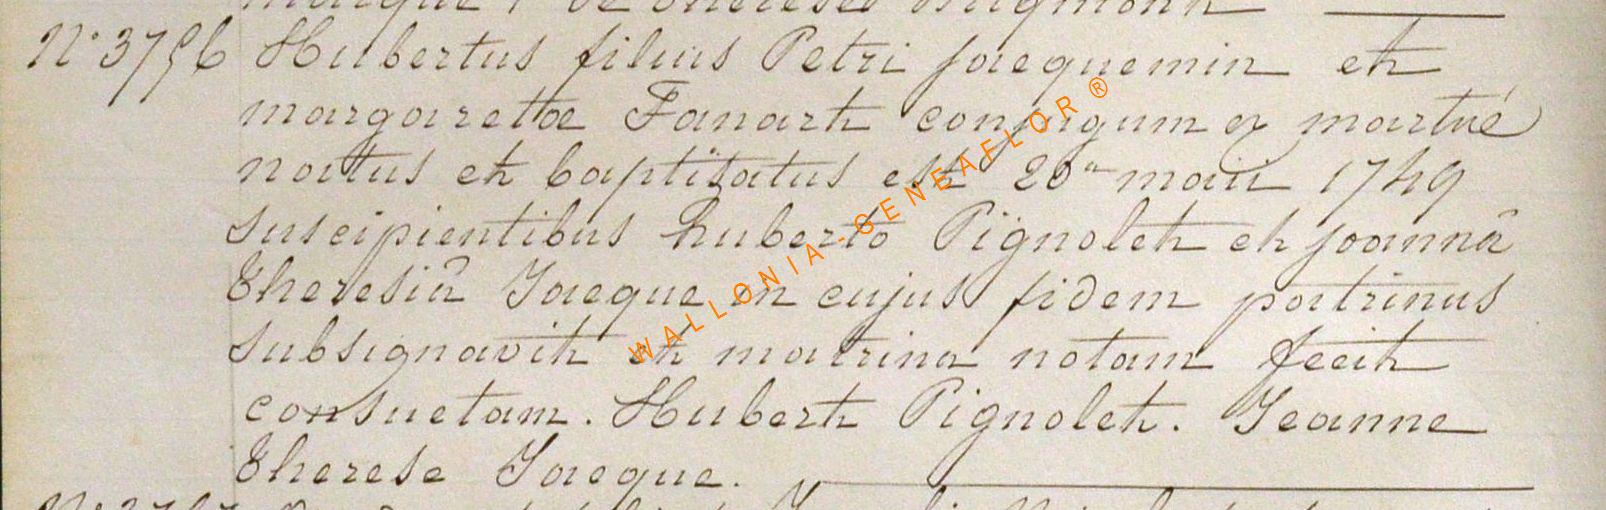 de therese
N° 3756 Hubertus filius Petri Jacquemin et
margaretæ Fanart conjugum ex martué
natus et baptisatus est 20ᵃ maii 1749
suscipientibus huberto Pignolet et joannâ
theresiâ Jacque in cujus fidem patrinus
subsignavit et matrina notam fecit
consuetam. Hubert Pignolet. Jeanne
therese Jacque.
WALLONIA-GENEAFLOR®